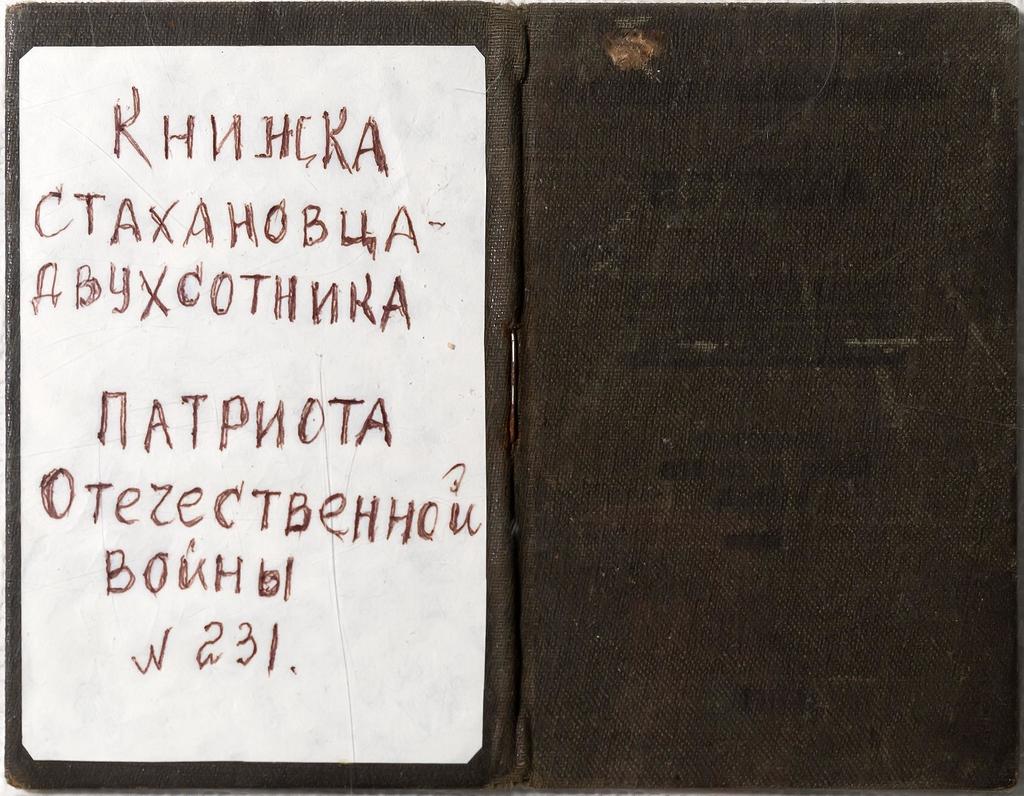 Книжка
стахановца-
двухсотника
Патриота
Отечественной
войны
N 231.